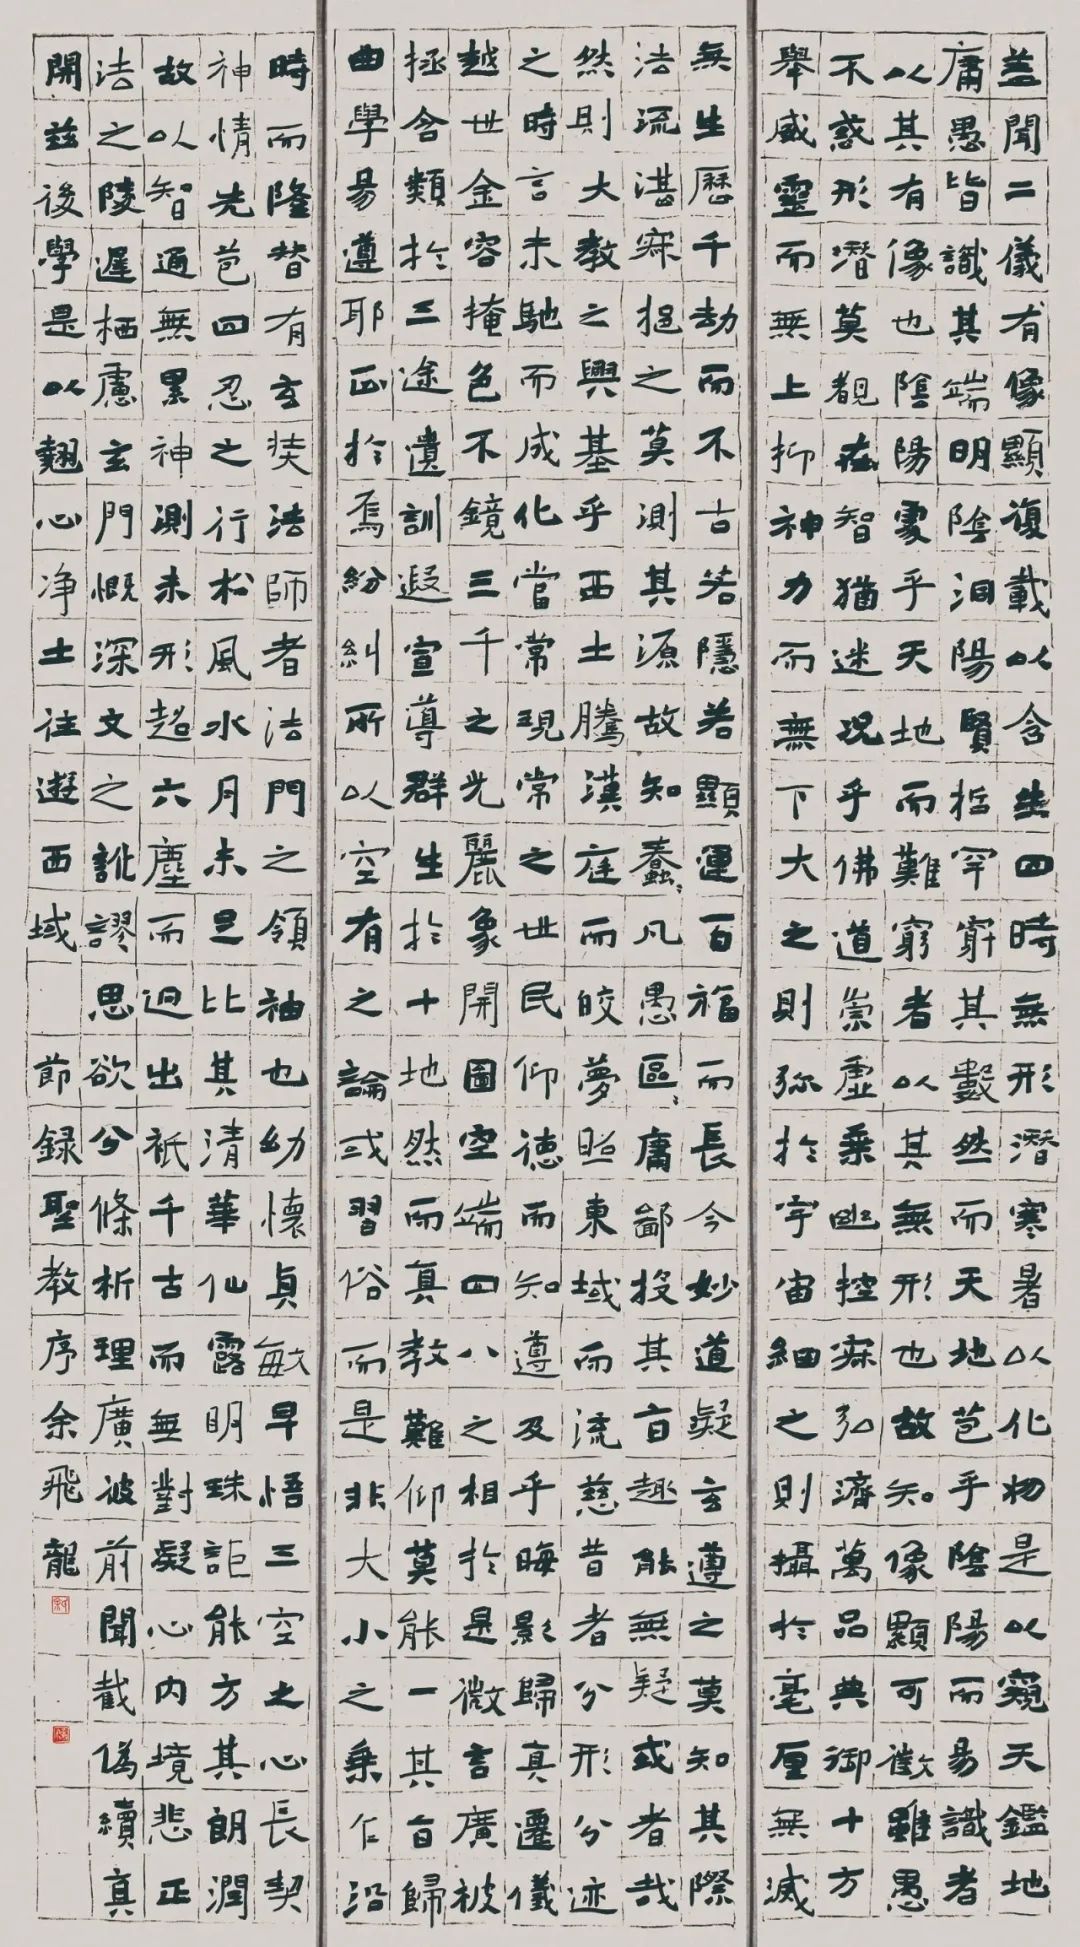 盖聞二儀有像顯復載以含生四時無形潛寒暑以化物是以窺天鑑地
庸愚皆識其端明陰洎陽賢哲罕窮其數然而天地苞乎陰陽而易識者
以其有像也陰陽處乎天地而難窮者以其無形也故知像顯可徵雖愚
不惑形潛莫覩在智猶迷況乎佛道崇虛乘幽控寂弘濟萬品典御十方
舉威靈而無上抑神力而無下大之則弥於宇宙細之則攝於毫厘無滅
無生歷千劫而不古若隱若顯運百福而長今妙道凝玄遵之莫知其際
法流湛寂挹之莫測其源故知蠢〻凡愚區〻庸鄙投其旨趣能無疑或者哉
然則大教之興基乎西土騰漢庭而皎夢照東域而流慈昔者分形分迹
之時言未馳而成化當常現常之世民仰德而知遵及乎晦影歸真遷儀
越世金容掩色不鏡三千之光麗象開圖空端四八之相於是微言廣被
拯含類於三途遺訓遐宣導群生於十地然而真教難仰莫能一其旨歸
曲學易遵耶正於焉紛糾所以空有之論或習俗而是非大小之乘乍沿
時而隆替有玄奘法師者法門之領袖也幼懷貞敏早悟三空之心長契
神情先苞四忍之行松風水月未足比其清華仙露明珠詎能方其朗潤
故以智通無累神測未形超六塵而迥出祇千古而無對凝心內境悲正
法之陵遲栖慮玄門慨深文之訛謬思欲分條析理廣彼前聞截偽續真
開茲後學是以翹心净土往遊西域 節録聖教序余飛龍